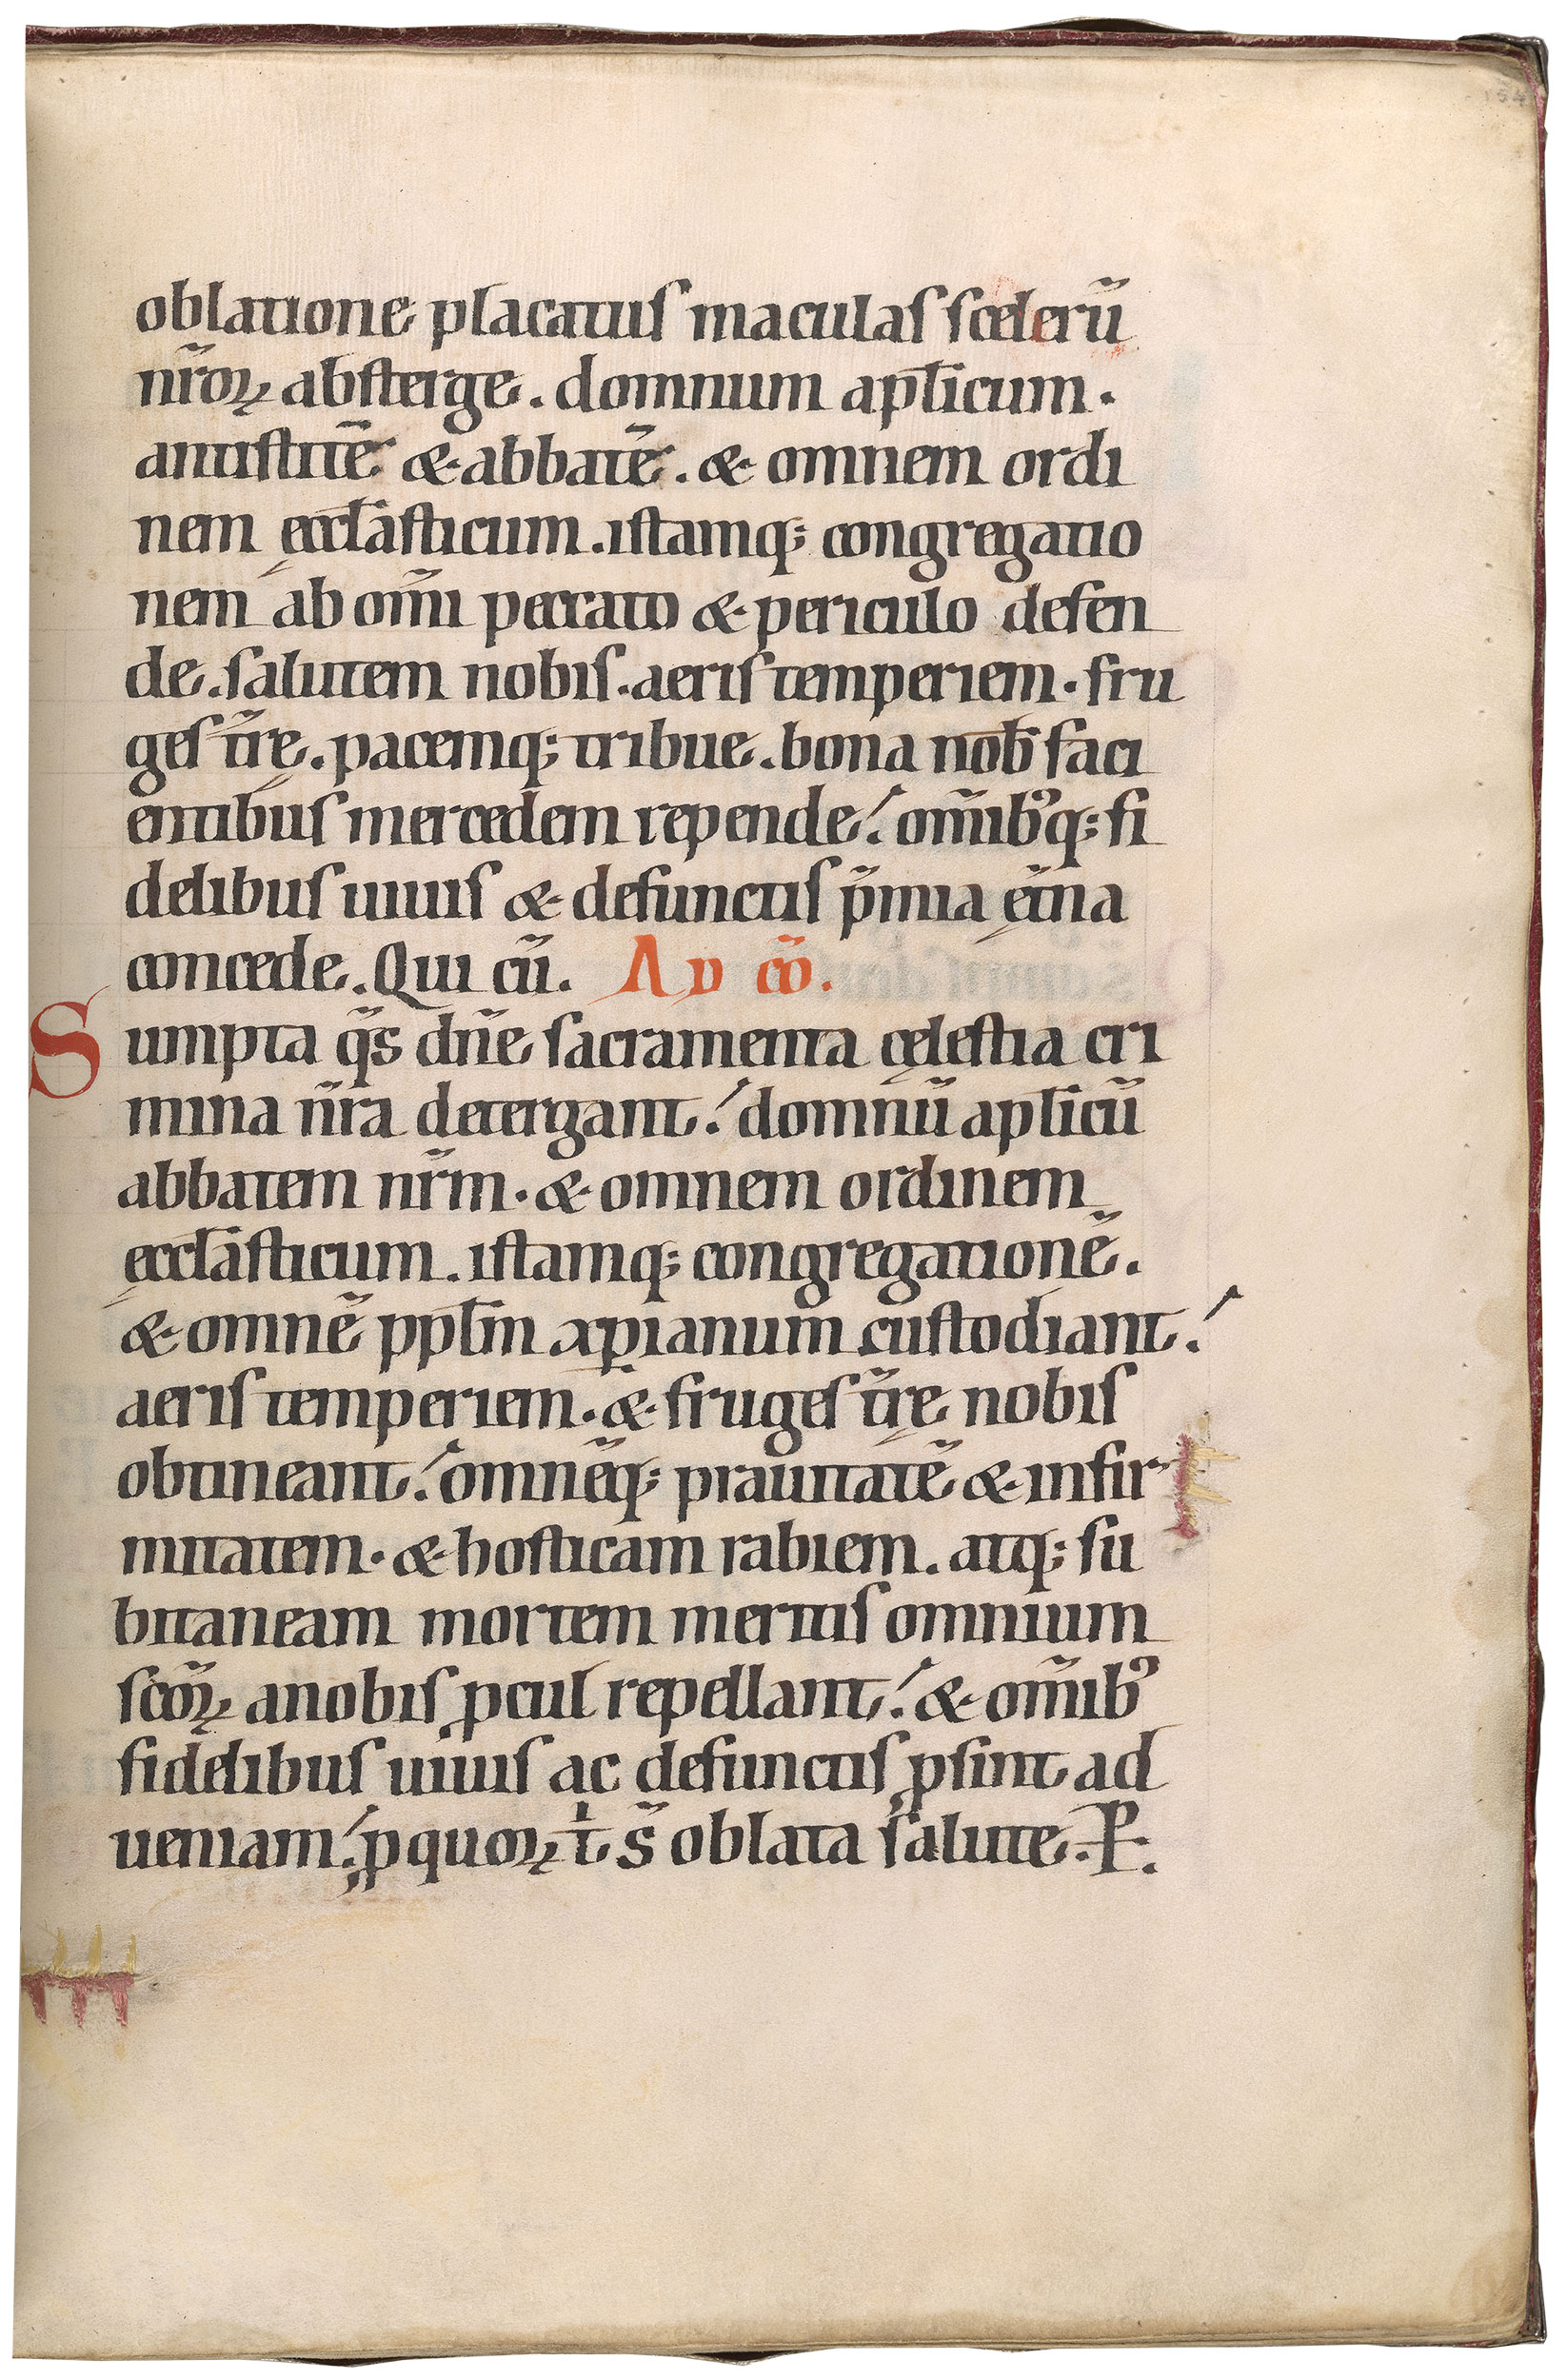 154
oblatione placatus maculas scelerũ
nr̃oꝝ absterge. domnum aplĩcum.
antistitẽ & abbatẽ. & omnem ordi
nem ęcclãsticum. istamq; congregatio
nem ab om̃i peccato & periculo defen
de. salutem nobis. aeris temperiem. fru
ges tr̃ę. pacemq; tribue. bona nob̃ faci
entibus mercedem repende. om̃ib᾽q; fi
delibus uiuis & defunctis p̃mia ęt̃na
concede. Qui cũ. AD cõ.
Sumpta q̃s dñe sacramenta cęlestia cri
mina nr̃a detergant. domnũ aplĩcũ
abbatem nr̃m. & omnem ordinem
ęcclãsticum. istamq; congregationẽ.
& omnẽ pplm̃ xp̃ianum custodiant.
aeris temperiem. & fruges tr̃ę nobis
obtineant. omnẽq; prauitatẽ & infir
mitatem. & hosticam rabiem. atq; su
bitaneam mortem meritis omnium
sc̃oꝝ a nobis ꝓcul repellant. & om̃ib᾽
fidelibus uiuis ac defunctis ꝓsint ad
ueniam. ꝓ quoꝝ t̵ s̃ oblata salute. P.